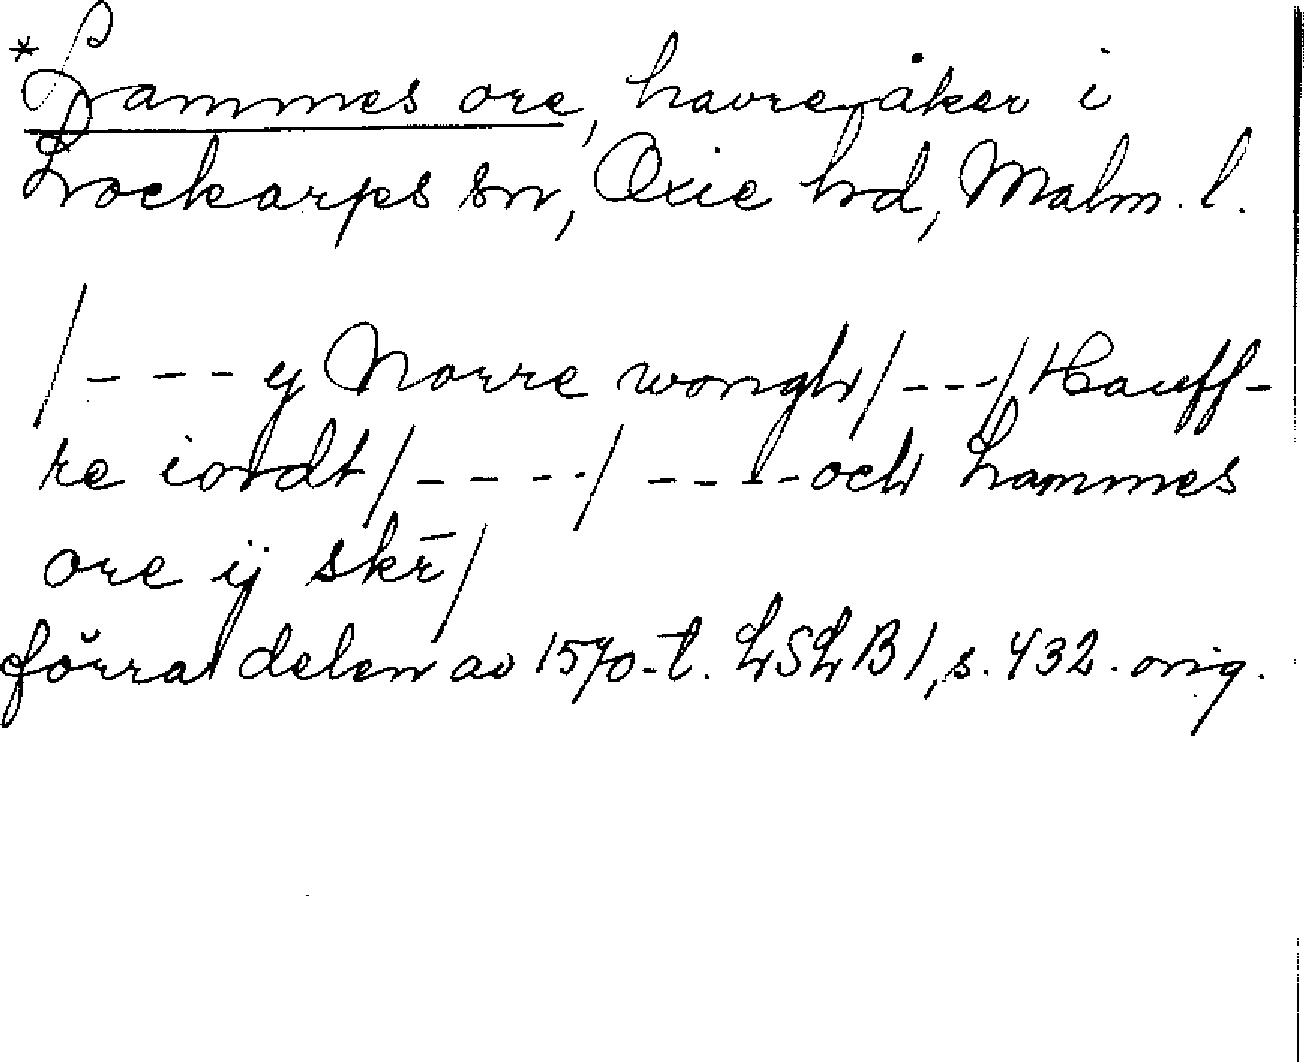 *Lammes ore, havreåker i
Lockarps sn, Oxie hd, Malm. l.
/---- y Norre wongh/---/Hauff-
re iordt/----/ ----och Lammes
ore ij skr̄/
förra delen av 1570-t. LSLB1, s. 432. orig.